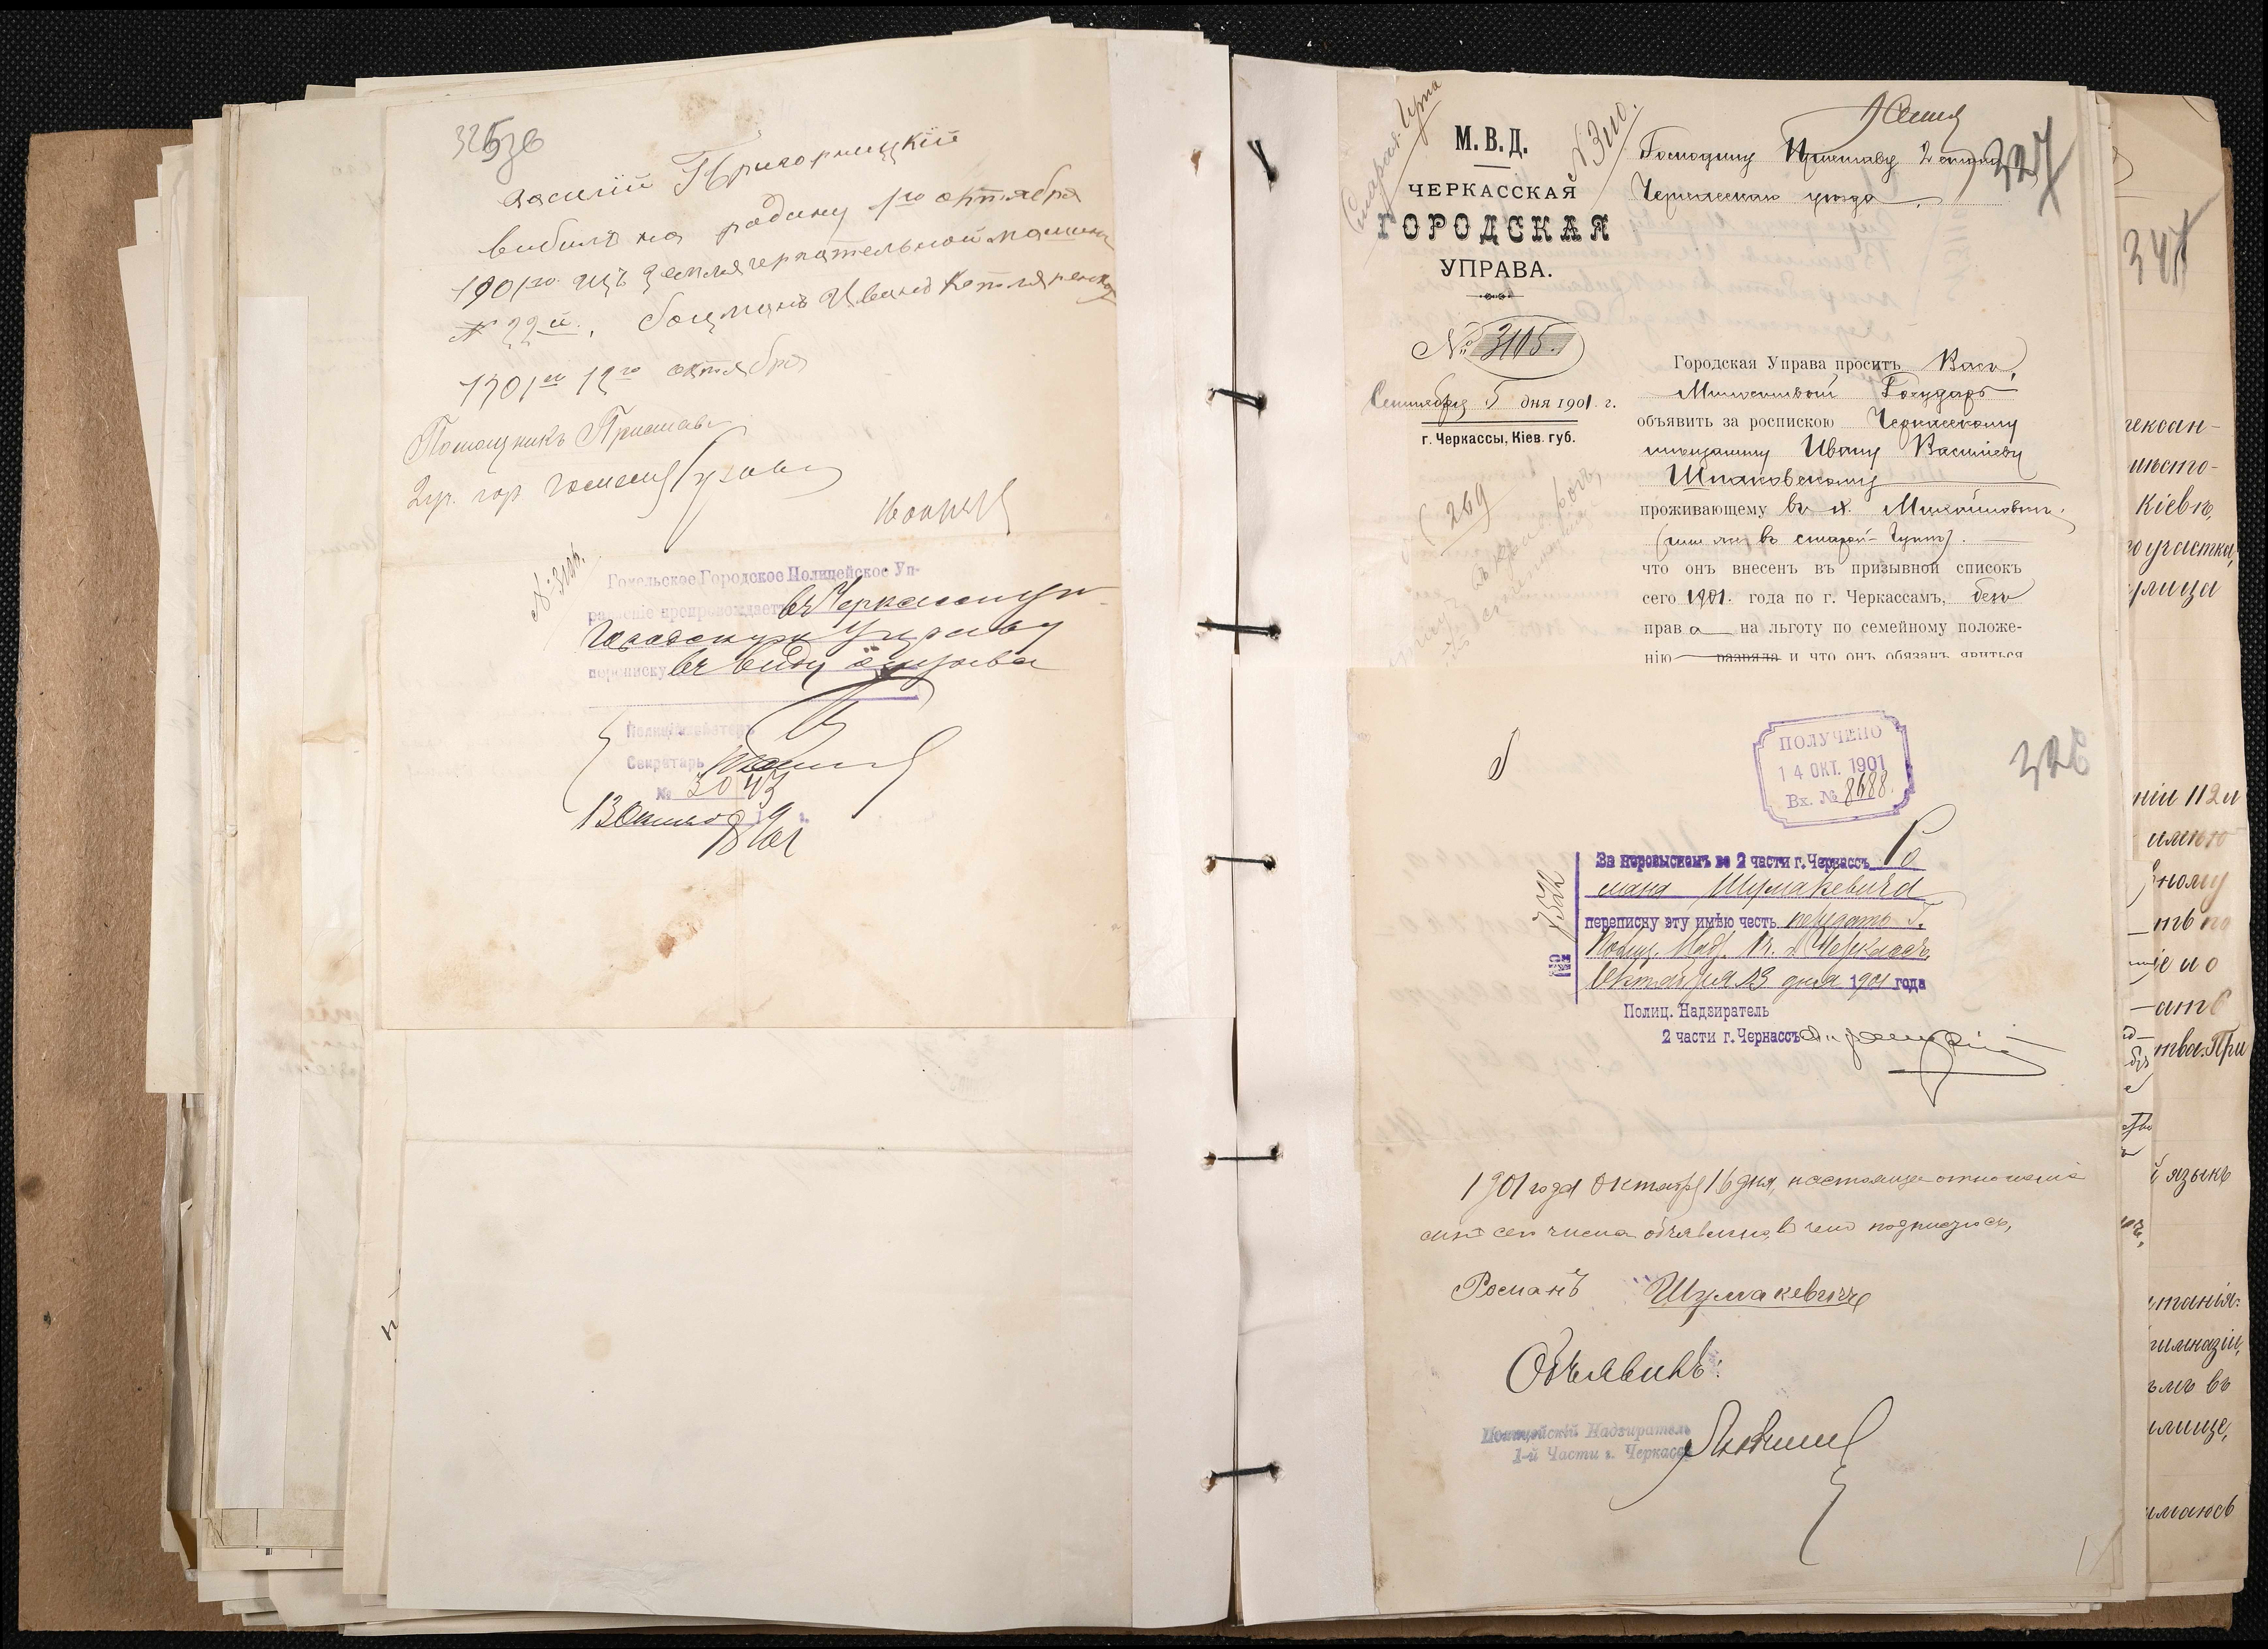 325 об
Василій Григорницкій
выбылъ на родину 1го октября
1901го изъ Землечерпательной машины
№ 22й. боцманъ Иванъ Котляренко
1901го 12го октября
Помощникъ Пристава
2 уч. гор. Гомеля
№ 3104.
Гомельское Городское Полицейское Уп-
равленіе препровождаетъ въ Черкасскую
Городскую Управу
переписку въ виду отзыва
Полиціймейстеръ
Секретарь
№ 3043
13 Октября 1901 г.
Старая-Гута
№ 3110.
М. В. Д.
ЧЕРКАССКАЯ
ГОРОДСКАЯ
УПРАВА.
№ 3105.
Сентября 5 дня 1901 г.
г. Черкассы, Кіев. губ.
269
327
Господину Приставу 2 стана
Черкасскаго уѣзда.
Городская Управа проситъ Васъ,
Милостивый Государь
объявить за роспискою Черкасскому
мѣщанину Ивану Васильеву
Шпаковскому
проживающему въ х. Михайловкѣ.
(или же въ старой-Гутѣ).
что онъ внесенъ въ призывной списокъ
сего 1901. года по г. Черкассамъ, безъ
права на льготу по семейному положе-
нію разряда и что онъ обязанъ явиться
326
ПОЛУЧЕНО
14 ОКТ. 1901
Вх. № 8688.
За нерозыскомъ во 2 части г. Черкассъ Ро
мана Шумакевича
переписку эту имѣю честь передать Г.
Полиц. Надз. 1 ч. г. Черкассъ.
Октября 13 дня 1901 года
№ 7572
Полиц. Надзиратель
2 части г. Черкассъ
1901 года Октября 16 дня, настоящее отношеніе
мнѣ сего числа объявлено, въ чемъ подписуюсь,
Романъ Шумакевичъ
Объявилъ:
Полицейскій Надзиратель
1-й Части г. Черкассъ
347
Кіевѣ,
го участка,
ніи 112 и
имѣю
ному
тва. При
й языкъ
гимназіи,